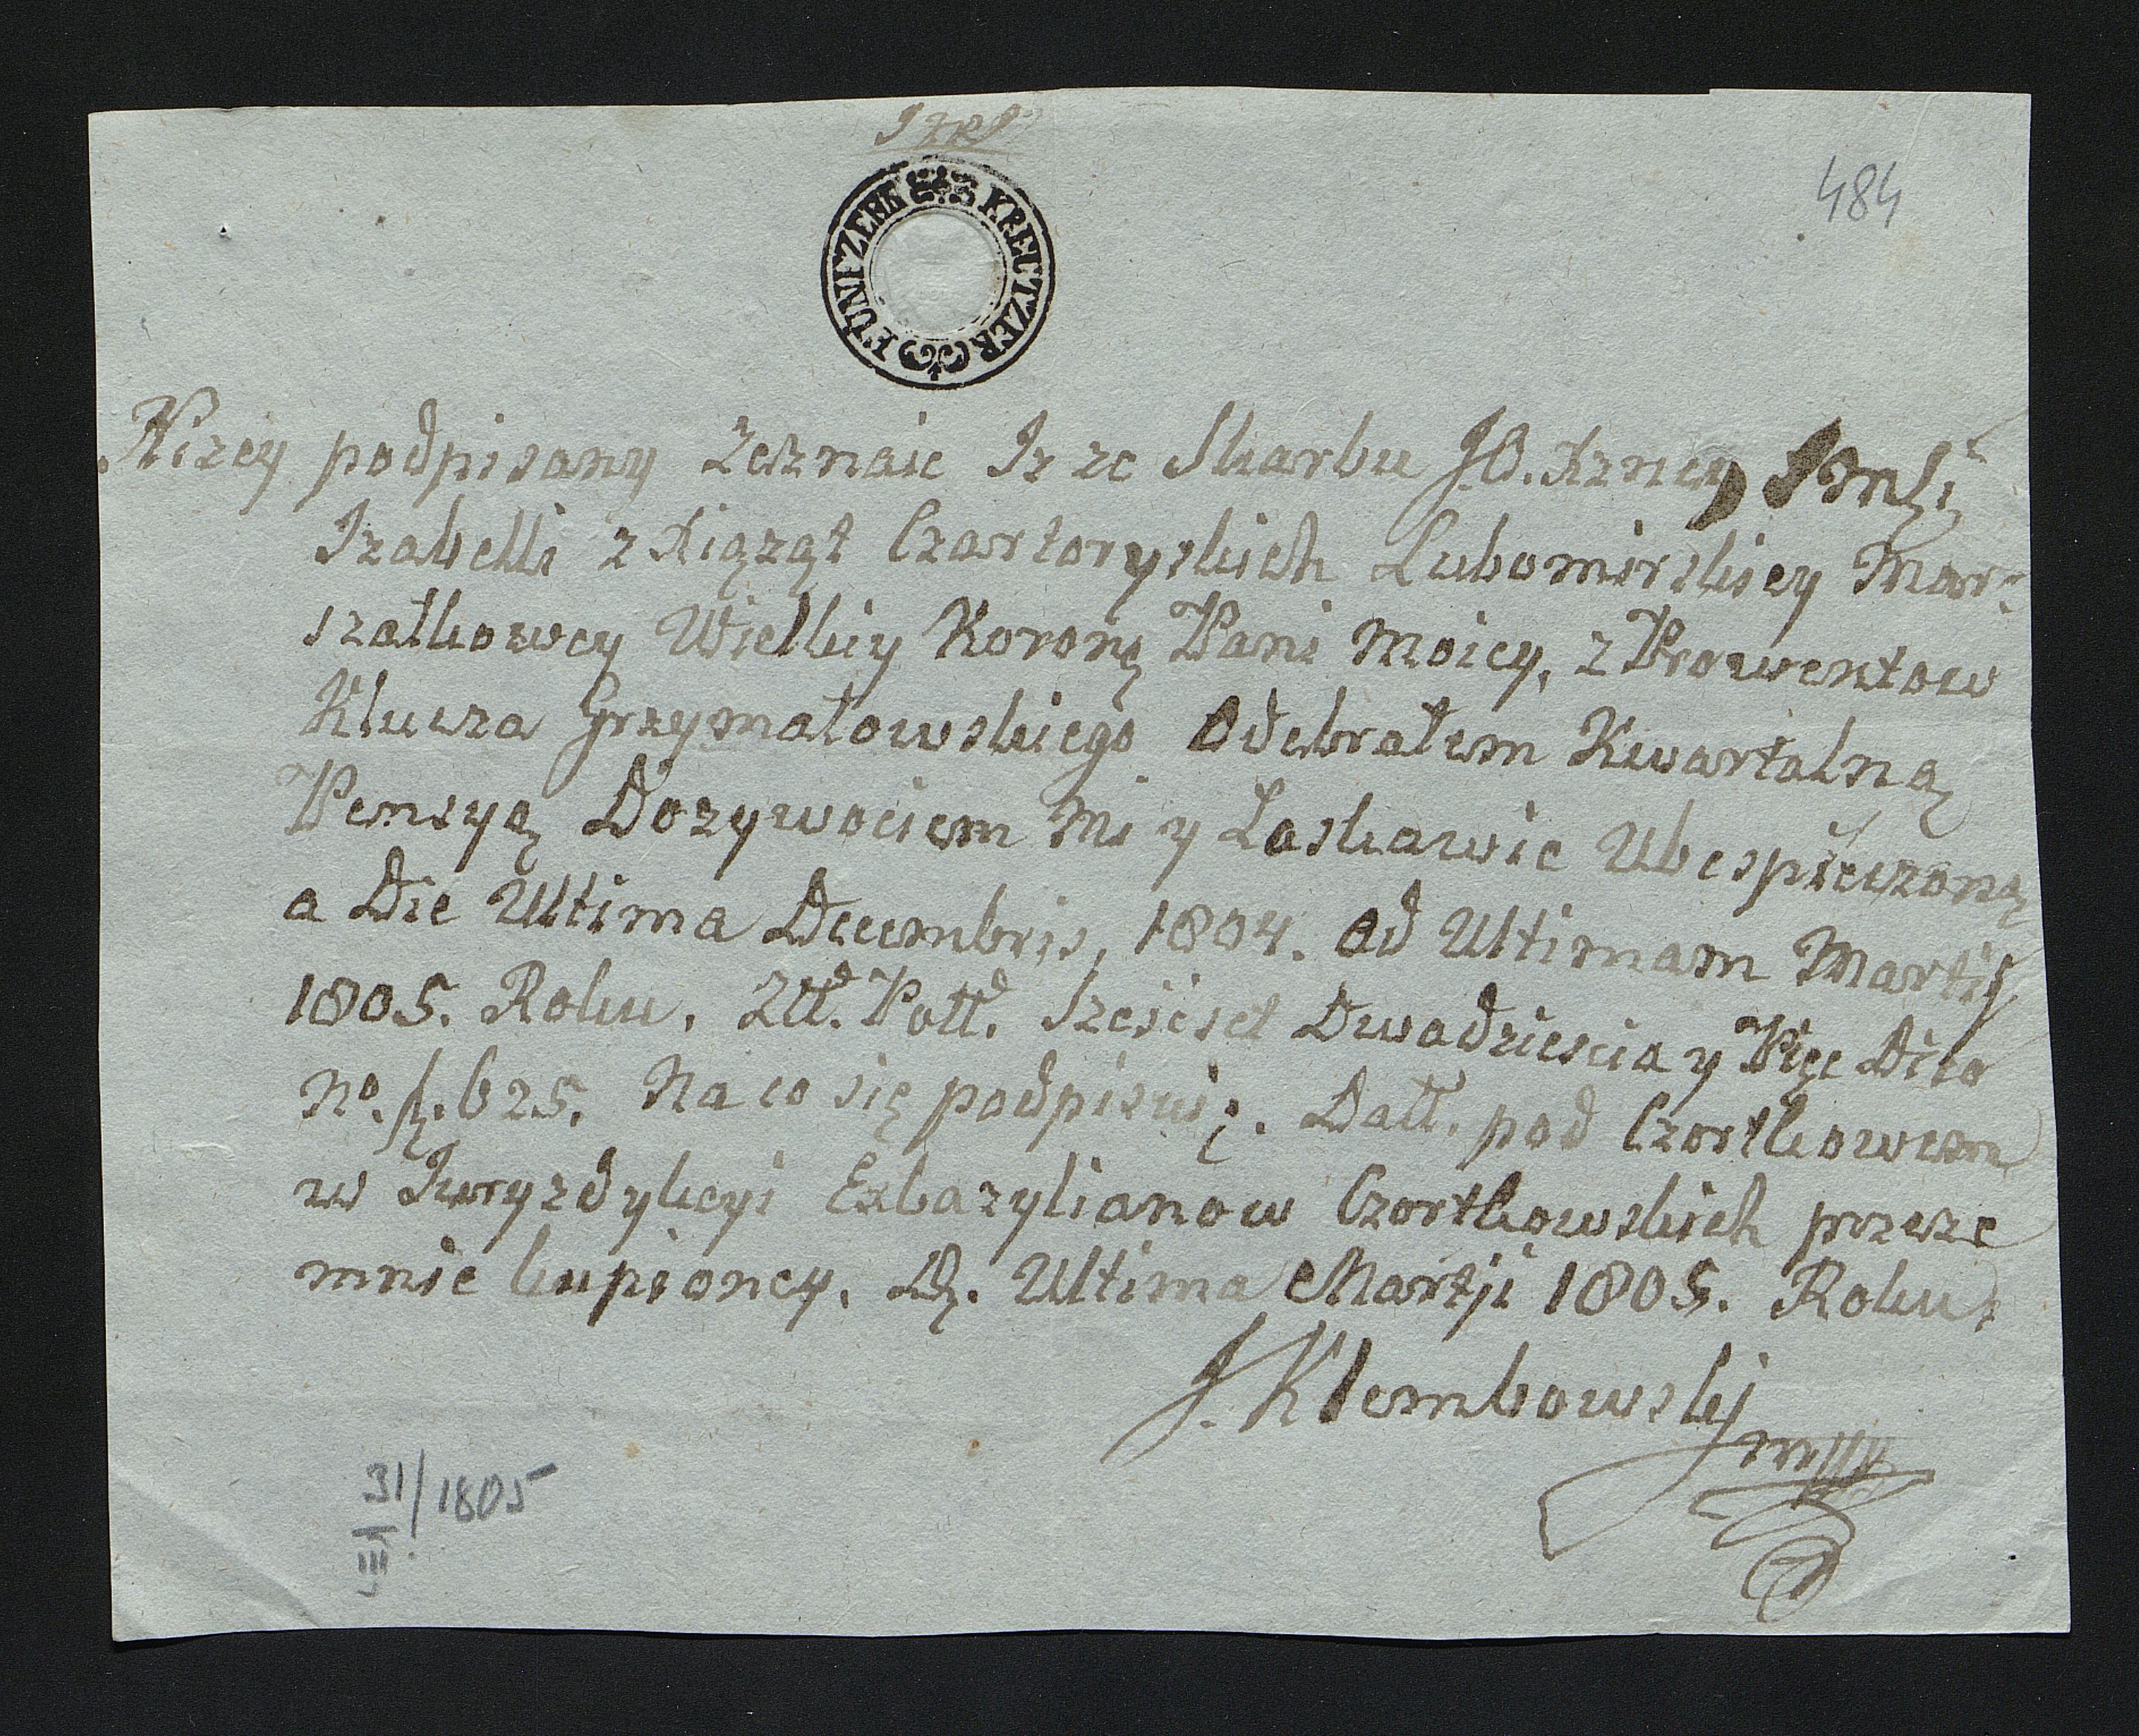 484
FÜNFZEHN KREUTZER
Nizey podpisany Zeznaie Iz ze Skarbu J.O. Xzney Imśi
Izabelli z Xiążąt Czartoryskich Lubomirskiey Mar:
szałkowey Wielkiy Korony Pani Moiey, z Prowentow
Klucza Grzymałowskiego Odebrałem Kwartalną
Pensyą Dozywociem Mi y Łaskawie Ubespieczoną
a Die Ultima Decembris, 1804. Ad Ultimam Martij
1805. Roku, Złł. Poll. Sześćset Dwadziescia y Pięc Dico
No. f. 625. Na co się podpisuię. Datt. pod Czortkowem
w Iuryzdykcyi Exbazylianow Czortkowskich przeze
mnie kupioney, D. Ultima Martji 1805. Roku,
J. Klembowski
31/III 1805